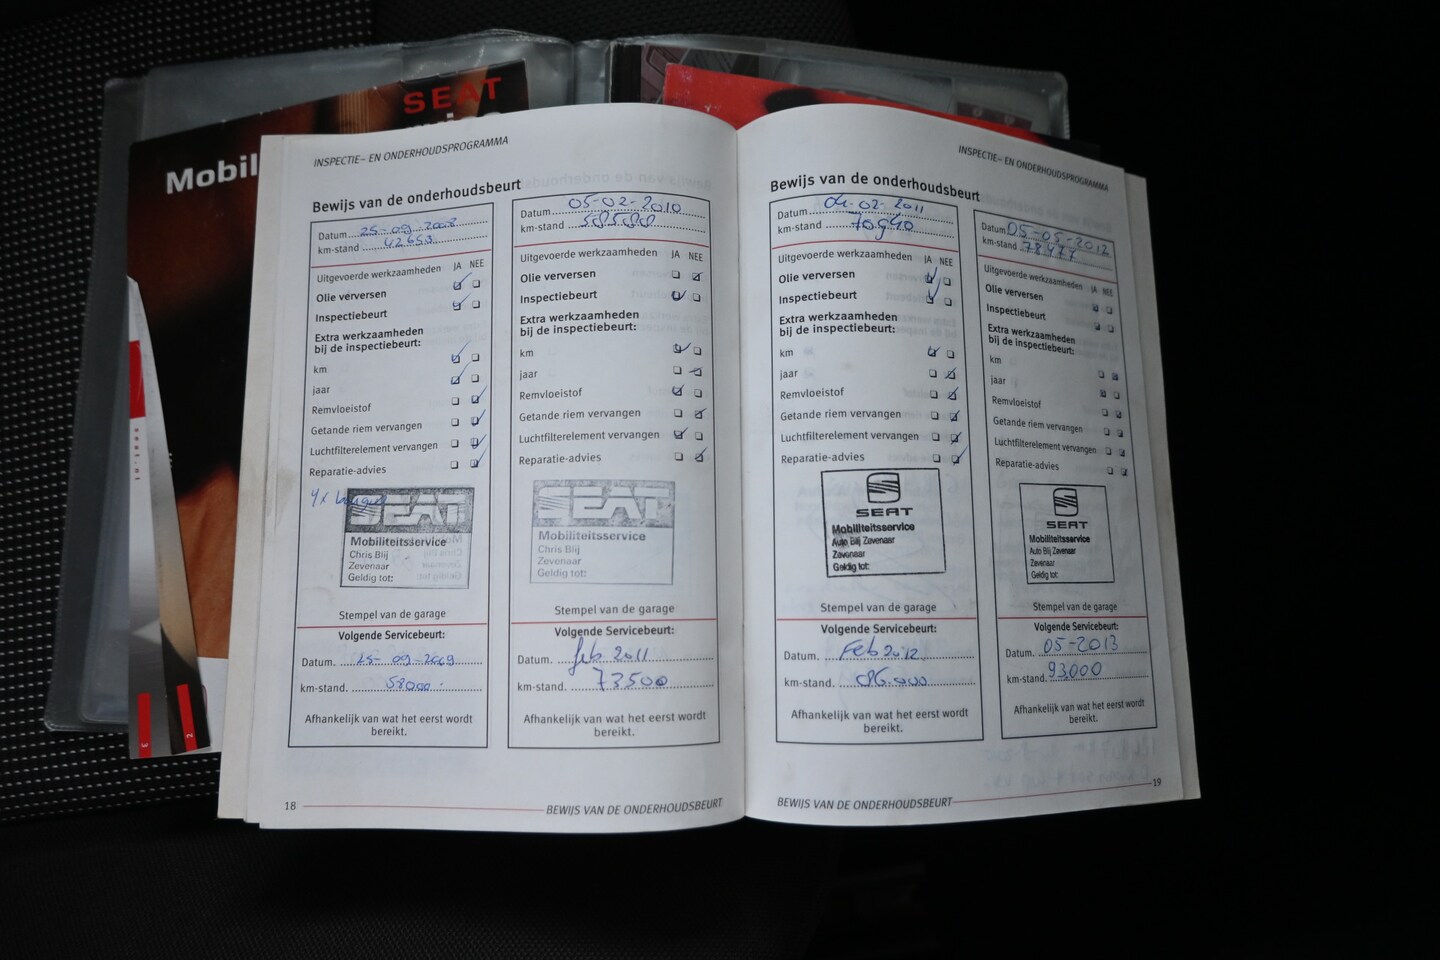 SEAT
Mobil
seat.nl
2
3
INSPECTIE- EN ONDERHOUDSPROGRAMMA
Bewijs van de onderhoudsbeurt
Datum 25-09-2008
km-stand 42653
Uitgevoerde werkzaamheden JA NEE
Olie verversen
Inspectiebeurt
Extra werkzaamheden
bij de inspectiebeurt:
km
jaar
Remvloeistof
Getande riem vervangen
Luchtfilterelement vervangen
Reparatie-advies
4x
SEAT
Mobiliteitsservice
Chris Blij
Zevenaar
Geldig tot:
Stempel van de garage
Volgende Servicebeurt:
Datum. 25-09-2009
km-stand. 58000
Afhankelijk van wat het eerst wordt
bereikt.
Datum 05-02-2010
km-stand 58588
Uitgevoerde werkzaamheden JA NEE
Olie verversen
Inspectiebeurt
Extra werkzaamheden
bij de inspectiebeurt:
km
jaar
Remvloeistof
Getande riem vervangen
Luchtfilterelement vervangen
Reparatie-advies
SEAT
Mobiliteitsservice
Chris Blij
Zevenaar
Geldig tot:
Stempel van de garage
Volgende Servicebeurt:
Datum. feb 2011
km-stand. 73500
Afhankelijk van wat het eerst wordt
bereikt.
18
BEWIJS VAN DE ONDERHOUDSBEURT
INSPECTIE- EN ONDERHOUDSPROGRAMMA
Bewijs van de onderhoudsbeurt
Datum 04-02-2011
km-stand 70940
Uitgevoerde werkzaamheden JA NEE
Olie verversen
Inspectiebeurt
Extra werkzaamheden
bij de inspectiebeurt:
km
jaar
Remvloeistof
Getande riem vervangen
Luchtfilterelement vervangen
Reparatie-advies
SEAT
Mobiliteitsservice
Auto Blij Zevenaar
Zevenaar
Geldig tot:
Stempel van de garage
Volgende Servicebeurt:
Datum. Feb 2012
km-stand. 86.000
Afhankelijk van wat het eerst wordt
bereikt.
Datum 05-05-2012
km-stand 78477
Uitgevoerde werkzaamheden JA NEE
Olie verversen
Inspectiebeurt
Extra werkzaamheden
bij de inspectiebeurt:
km
jaar
Remvloeistof
Getande riem vervangen
Luchtfilterelement vervangen
Reparatie-advies
SEAT
Mobiliteitsservice
Auto Blij Zevenaar
Zevenaar
Geldig tot:
Stempel van de garage
Volgende Servicebeurt:
Datum. 05-2013
km-stand. 93,000
Afhankelijk van wat het eerst wordt
bereikt.
BEWIJS VAN DE ONDERHOUDSBEURT
19